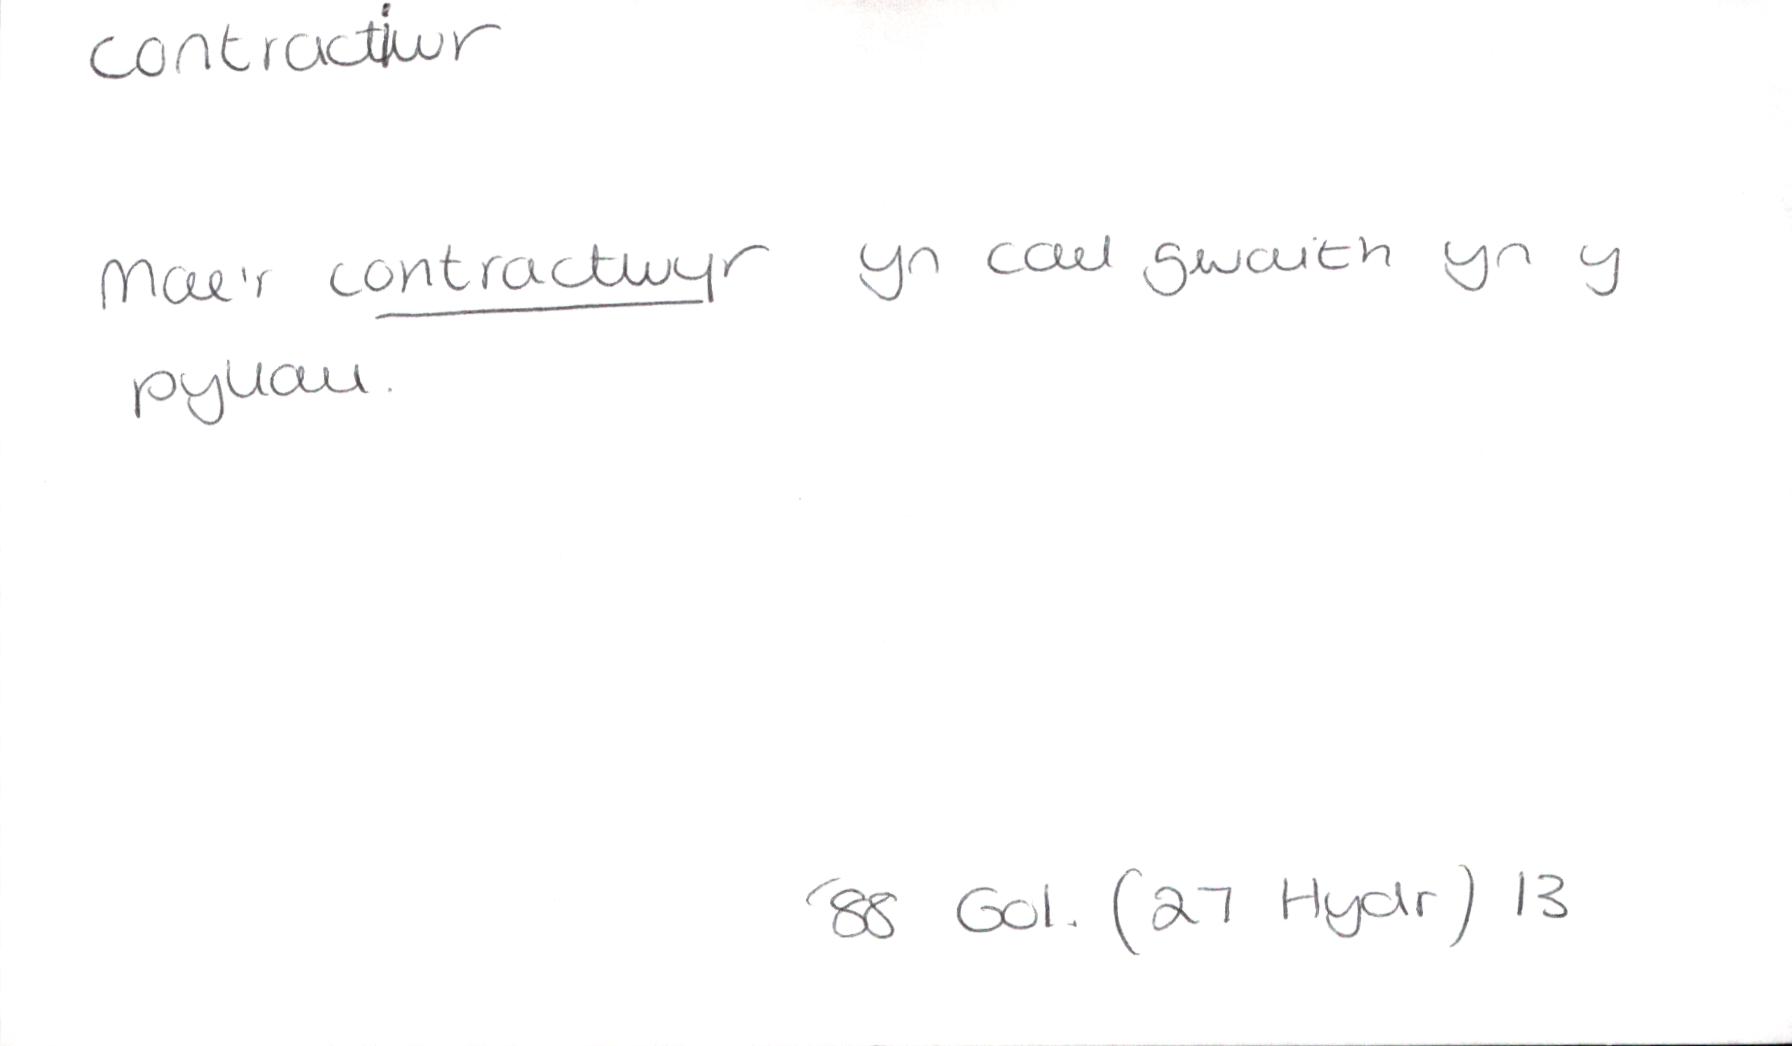 contractiwr
Mae'r contractwyr yn cael gwaith yn y
pyllau.
'88 Gol. (27 Hydr) 13